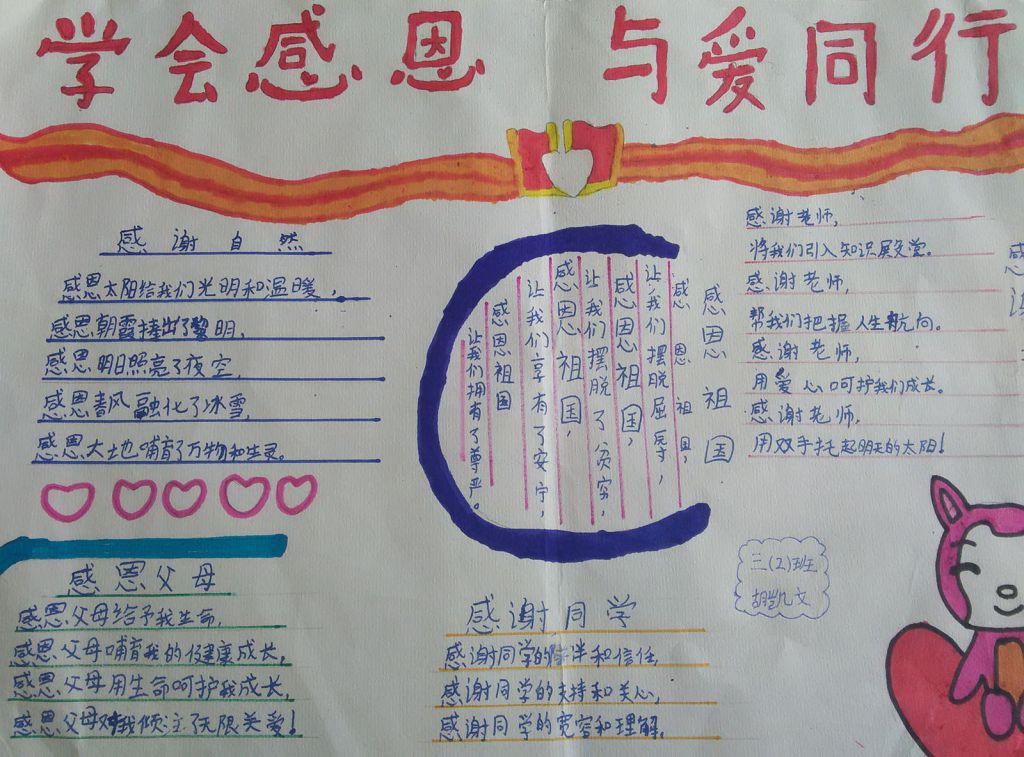 学会感恩 与爱同行
感谢自然
感恩太阳给我们光明和温暖，
感恩朝霞捧出了黎明，
感恩明日照亮了夜空，
感恩春风融化了冰雪，
感恩大地哺育了万物和生灵。
感恩父母
感恩父母给予我生命，
感恩父母哺育我的健康成长，
感恩父母用生命呵护我成长，
感恩父母对我倾注了无限关爱！
感恩祖国
感恩祖国，
让我们摆脱屈辱，
感恩祖国，
让我们摆脱了贫穷，
感恩祖国，
让我们享有了安宁，
感恩祖国
让我们拥有了尊严。
感谢同学
感谢同学的陪伴和信任，
感谢同学的支持和关心，
感谢同学的宽容和理解。
感谢老师，
将我们引入知识殿堂。
感谢老师，
帮我们把握人生航向。
感谢老师，
用爱心呵护我们成长。
感谢老师，
用双手托起明天的太阳！
感
三(2)班
胡凯文